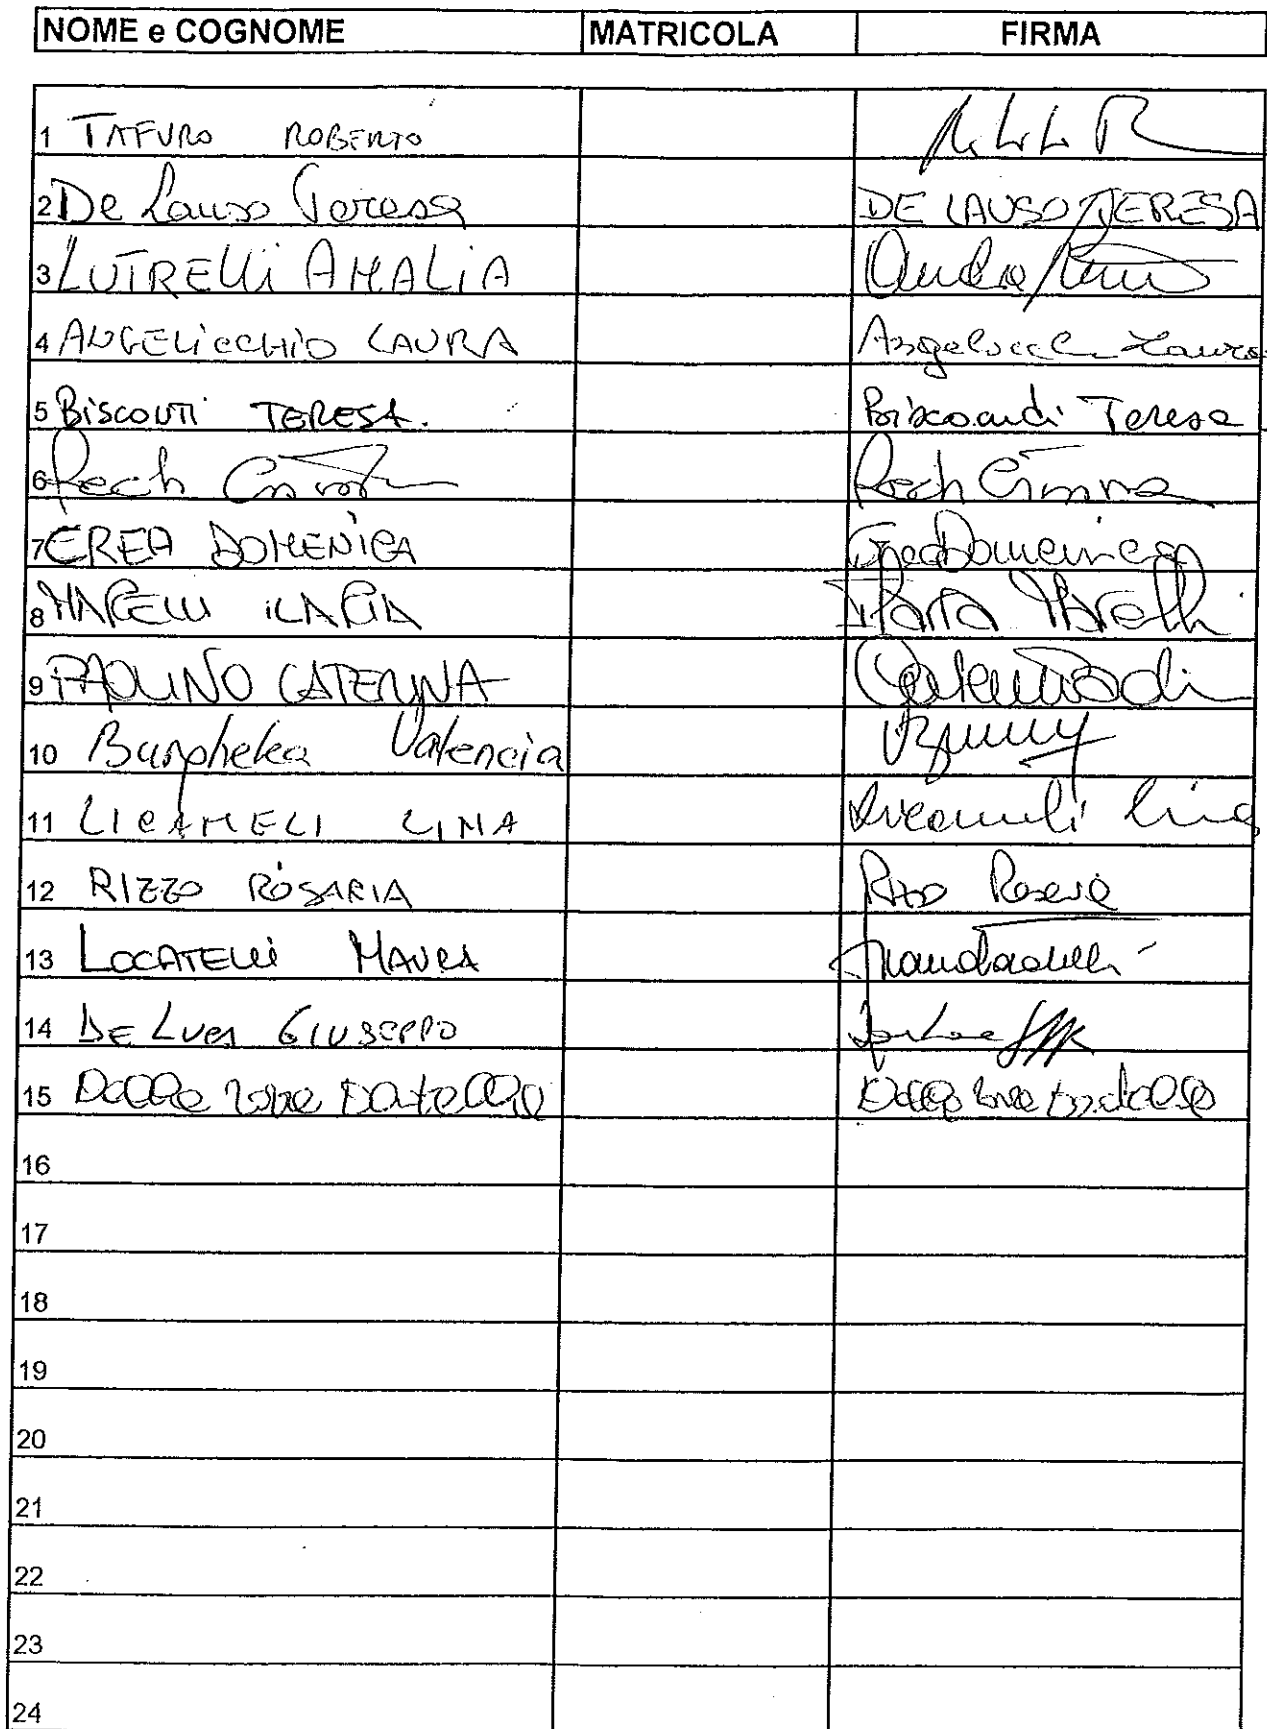 NOME e COGNOME MATRICOLA FIRMA
1 TAFURO ROBERTO
2 De Lauso Teresa DE LAUSO TERESA
3 LUTRELLI AMALIA
4 ANGELICCHIO LAURA Angelicchio Laura
5 BISCONTI TERESA. Bisconti Teresa
6 Rech Rech
7 CREA DOMENICA Crea Domenica
8 MARELLI ILARIA Ilaria Marelli
9 PAOLINO CATERINA
10 Valencia
11 LICAMELI LINA Licameli Lina
12 RIZZO ROSARIA Rizzo Rosaria
13 LOCATELLI MAURA
14 DE LUCA GIUSEPPO
15 Dalle
16
17
18
19
20
21
22
23
24